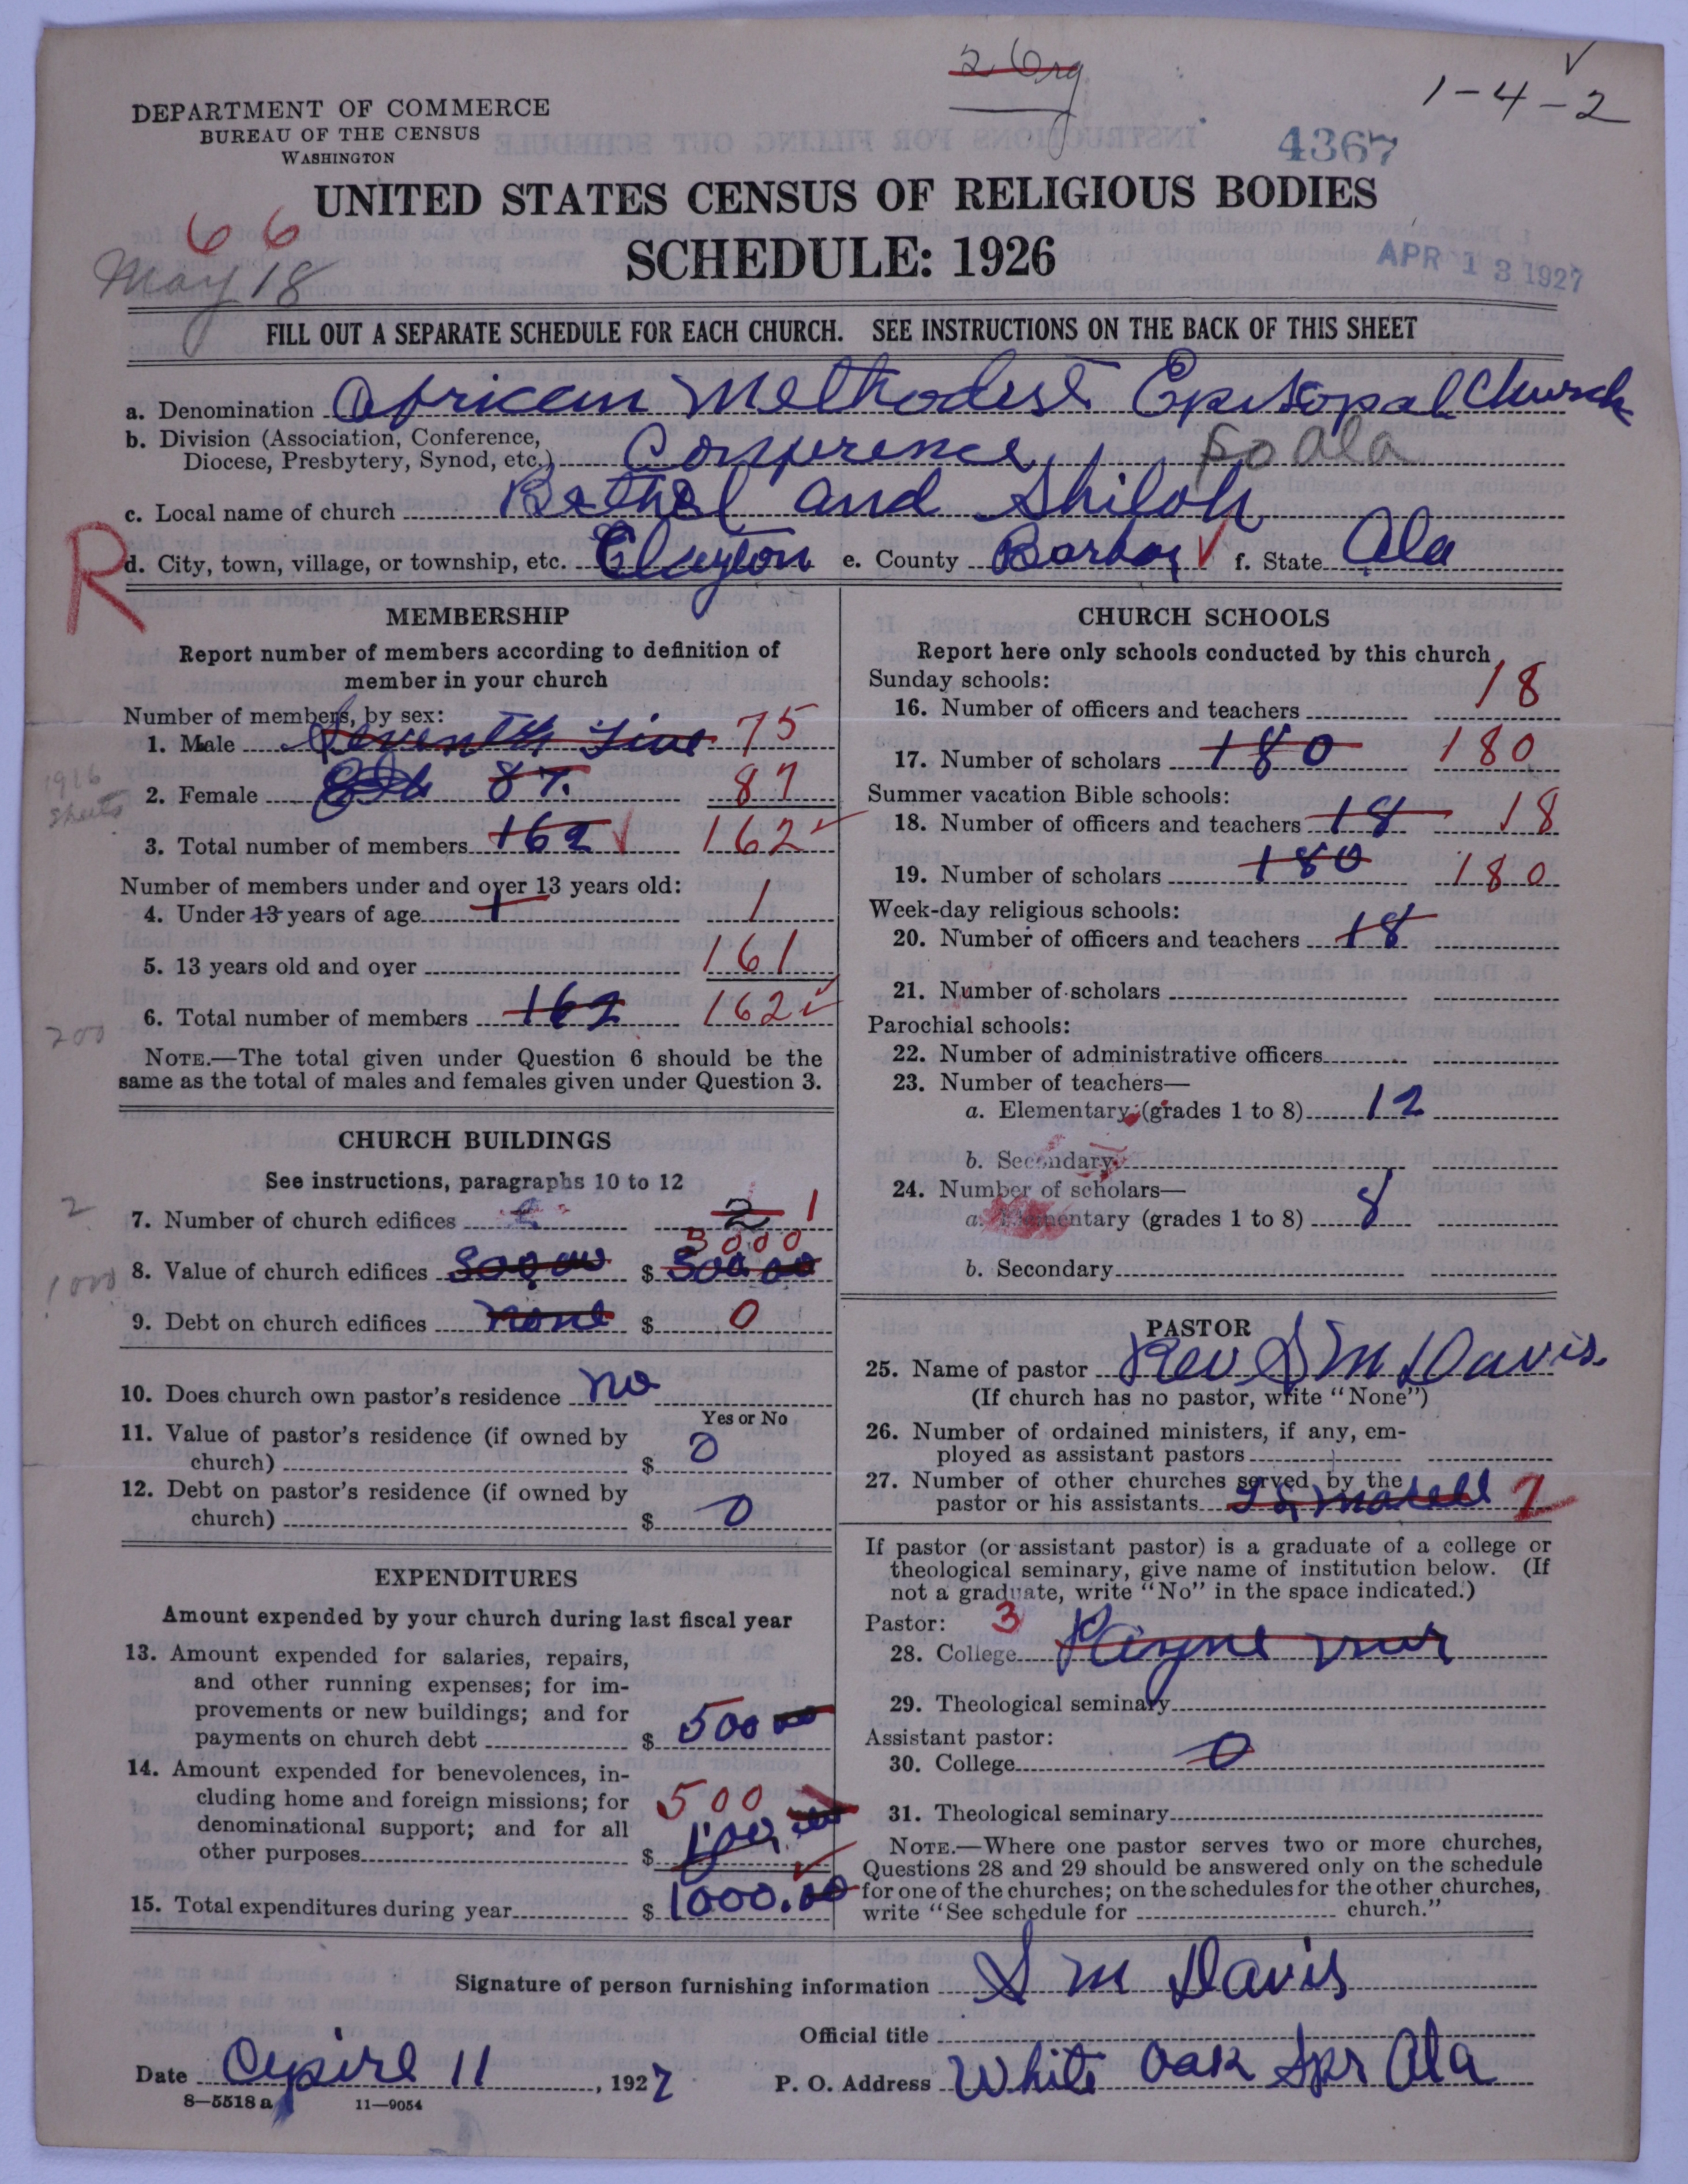 2 Org
1-4-2
DEPARTMENT OF COMMERCE
BUREAU OF THE CENSUS
WASHINGTON
4367
UNITED STATES CENSUS OF RELIGIOUS BODIES
66
May 18
SCHEDULE: 1926
APR 13 1927
FILL OUT A SEPARATE SCHEDULE FOR EACH CHURCH. SEE INSTRUCTIONS ON THE BACK OF THIS SHEET
a. Denomination African Methodist Episcopal Church
b. Division (Association, Conference,
Diocese, Presbytery, Synod, etc.) Conference So Ala
c. Local name of church Bethel and Shiloh
R
d. City, town, village, or township, etc. Clayton e. County Barbor f. State Ala
MEMBERSHIP
Report number of members according to definition of
member in your church
Number of members, by sex:
1. Male Seventy five 75
1916
sheets
2. Female 87. 87
3. Total number of members 162 162
Number of members under and over 13 years old:
4. Under 13 years of age 1 1
5. 13 years old and over 161
6. Total number of members 162 162
200
NOTE.—The total given under Question 6 should be the
same as the total of males and females given under Question 3.
CHURCH BUILDINGS
See instructions, paragraphs 10 to 12
2
7. Number of church edifices 2 2 1
3000
1000
8. Value of church edifices $
9. Debt on church edifices none $ 0
10. Does church own pastor's residence no
Yes or No
11. Value of pastor's residence (if owned by
church) $ 0
12. Debt on pastor's residence (if owned by
church) $ 0
EXPENDITURES
Amount expended by your church during last fiscal year
13. Amount expended for salaries, repairs,
and other running expenses; for im-
provements or new buildings; and for
payments on church debt $ 500 00
14. Amount expended for benevolences, in-
cluding home and foreign missions; for 500
denominational support; and for all
other purposes $
15. Total expenditures during year $ 1000.00
CHURCH SCHOOLS
Report here only schools conducted by this church
Sunday schools:
16. Number of officers and teachers 18
17. Number of scholars 180 180
Summer vacation Bible schools:
18. Number of officers and teachers 18 18
19. Number of scholars 180 180
Week-day religious schools:
20. Number of officers and teachers 18
21. Number of scholars
Parochial schools:
22. Number of administrative officers
23. Number of teachers—
a. Elementary (grades 1 to 8) 12
b. Secondary
24. Number of scholars—
a. Elementary (grades 1 to 8) 8
b. Secondary
PASTOR
25. Name of pastor Rev S M Davis.
(If church has no pastor, write "None")
26. Number of ordained ministers, if any, em-
ployed as assistant pastors
27. Number of other churches served by the
pastor or his assistants
If pastor (or assistant pastor) is a graduate of a college or
theological seminary, give name of institution below. (If
not a graduate, write "No" in the space indicated.)
Pastor: 3
28. College Payne
29. Theological seminary
Assistant pastor:
30. College 0
31. Theological seminary
NOTE.—Where one pastor serves two or more churches,
Questions 28 and 29 should be answered only on the schedule
for one of the churches; on the schedules for the other churches,
write "See schedule for church."
Signature of person furnishing information S M Davis
Official title
Date Apirl 11, 1927 P. O. Address White Oak Spr Ala
8—5518 a 11—9054